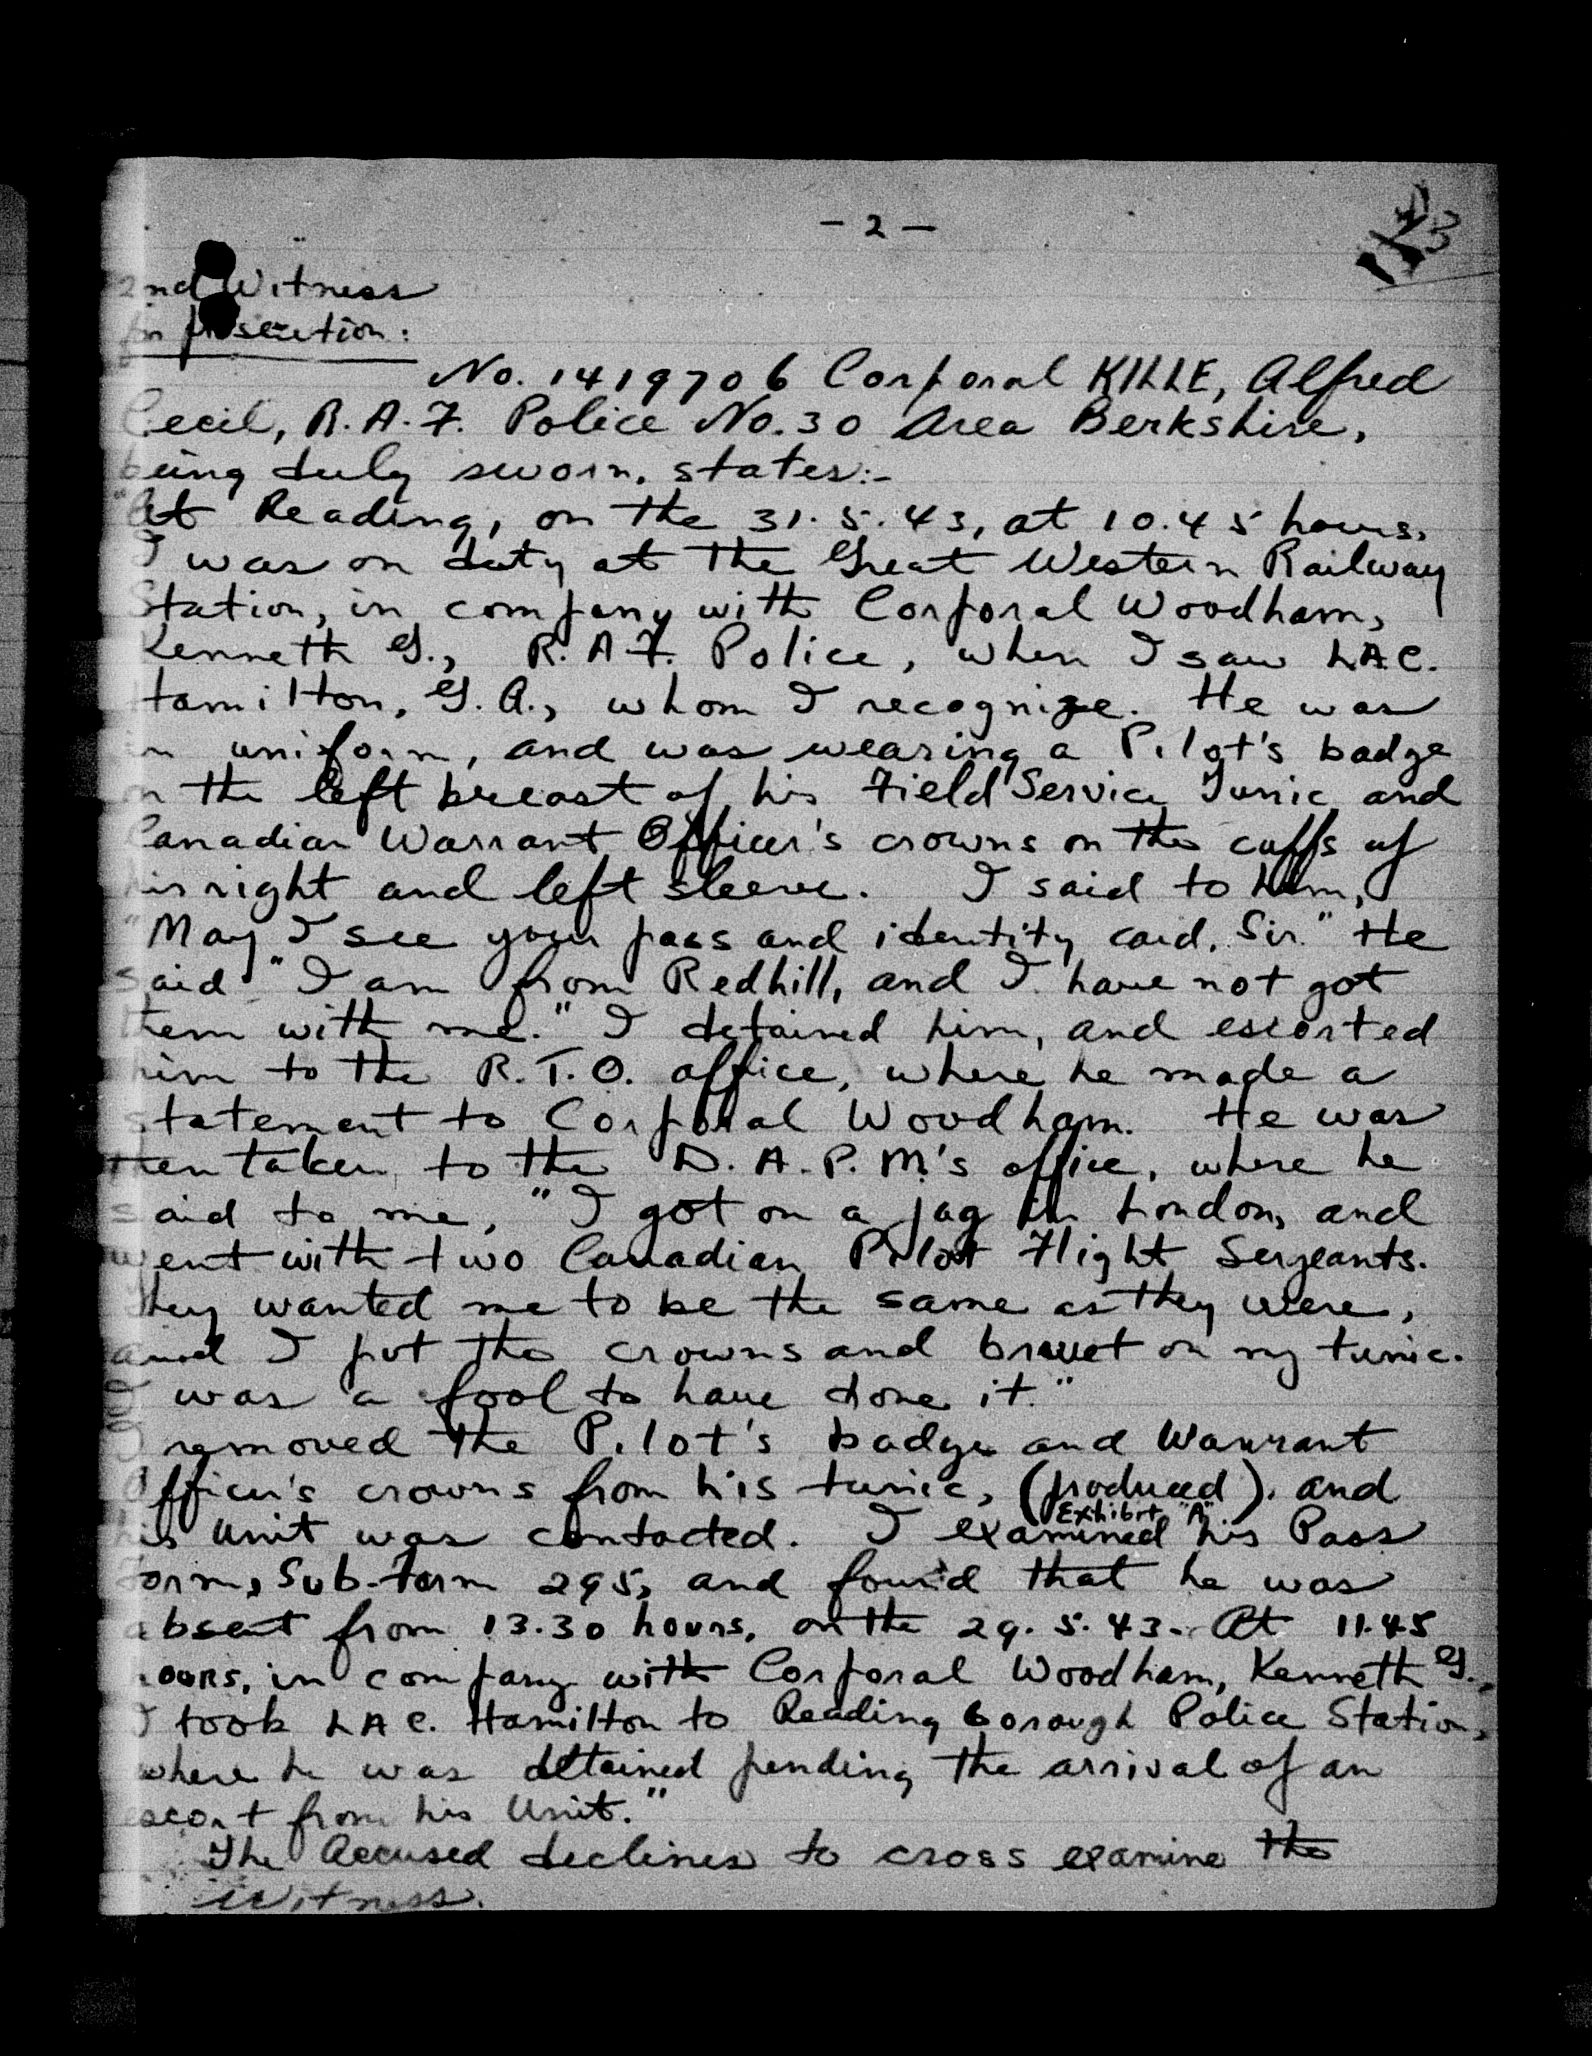 - 2 -
2nd Witness
for prosecution:
No. 1419706 Corporal KILLE, Alfred
Cecil, R.A.F. Police No. 30 Area Berkshire,
being duly sworn, states:-
"At Reading, on the 31.5.43, at 10.45 hours,
I was on duty at the Great Western Railway
Station, in company with Corporal Woodham,
Kenneth G., R.A.F. Police, when I saw LAC.
Hamilton, G.A., whom I recognize. He was
in uniform, and was wearing a Pilot's badge
on the left breast of his Field Service Tunic and
Canadian Warrant Officer's crowns on the cuffs of
his right and left sleeve. I said to him,
"May I see your pass and identity card, Sir." He
said "I am from Redhill, and I have not got
them with me." I detained him, and escorted
him to the R.T.O. office, where he made a
statement to Corporal Woodham. He was
then taken to the D.A.P.M.'s office, where he
said to me, "I got on a jag in London, and
went with two Canadian Pilot Flight Sergeants.
They wanted me to be the same as they were,
and I put the crowns and brevet on my tunic.
I was a fool to have done it."
I removed the Pilot's badge and Warrant
Officer's crowns from his tunic, (produced), and
Exhibit "A"
his Unit was contacted. I examined his Pass
Form, Sub-Form 295, and found that he was
absent from 13.30 hours, on the 29.5.43. At 11.45
hours, in company with Corporal Woodham, Kenneth G.,
I took LAC. Hamilton to Reading Borough Police Station,
where he was detained pending the arrival of an
escort from his Unit."
The Accused declines to cross examine the
Witness.